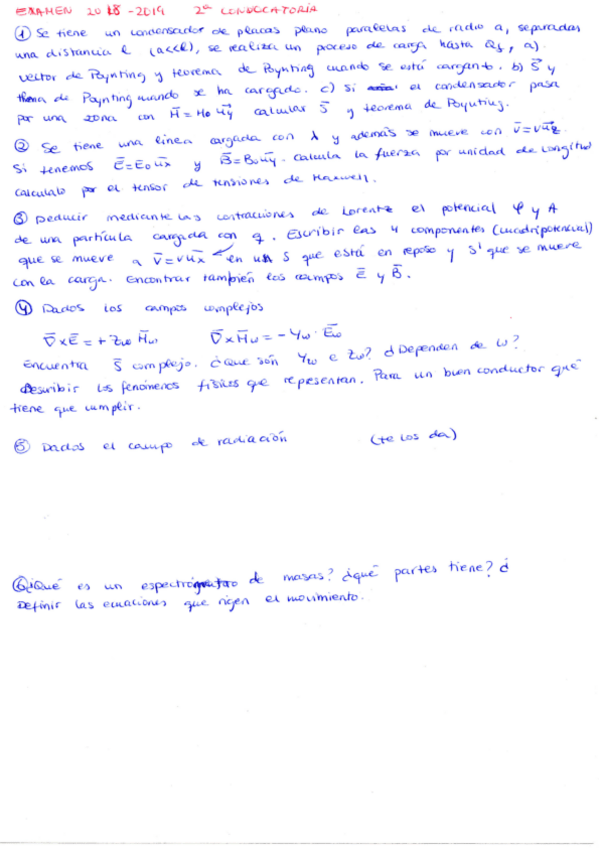 EXAMEN 2018-2019 2ª CONVOCATORIA
① Se tiene un condensador de placas plano paralelas de radio a, separadas
una distancia l (a<<l), se realiza un proceso de carga hasta Qf, a).
vector de Poynting y teorema de Poynting cuando se está cargando. b) S⃗ y
de Poynting cuando se ha cargado. c) Si el condensador pasa
por una zona con H̅ = H₀ u̅y calcular S̅ y teorema de Poynting.
② Se tiene una linea cargada con λ y además se mueve con v̅ = vu̅z.
Si tenemos E̅ = E₀ u̅x y B̅ = B₀ u̅y. Calcula la fuerza por unidad de longitud
calculalo por el tensor de tensiones de Maxwell.
③ Deducir mediante las contracciones de Lorentz el potencial φ y A
de una partícula cargada con q. Escribir las 4 componentes (cuadripotencial)
que se mueve a v̅ = vu̅x en un S que está en reposo y S' que se mueve
con la carga. Encontrar también los campos E̅ y B̅.
④ Dados los campos complejos
∇̅ x E̅ = + Zω H̅ω ∇̅ x H̅ω = - Yω · E̅ω
Encuentra S̅ complejo. ¿Que són Yω e Zω? ¿Dependen de ω?
Describir los fenómenos físicos que representan. Para un buen conductor qué
tiene que cumplir.
⑤ Dados el campo de radiación (te los da)
⑥ ¿Qué es un espectrómetro de masas? ¿qué partes tiene? ¿
Definir las ecuaciones que rigen el movimiento.